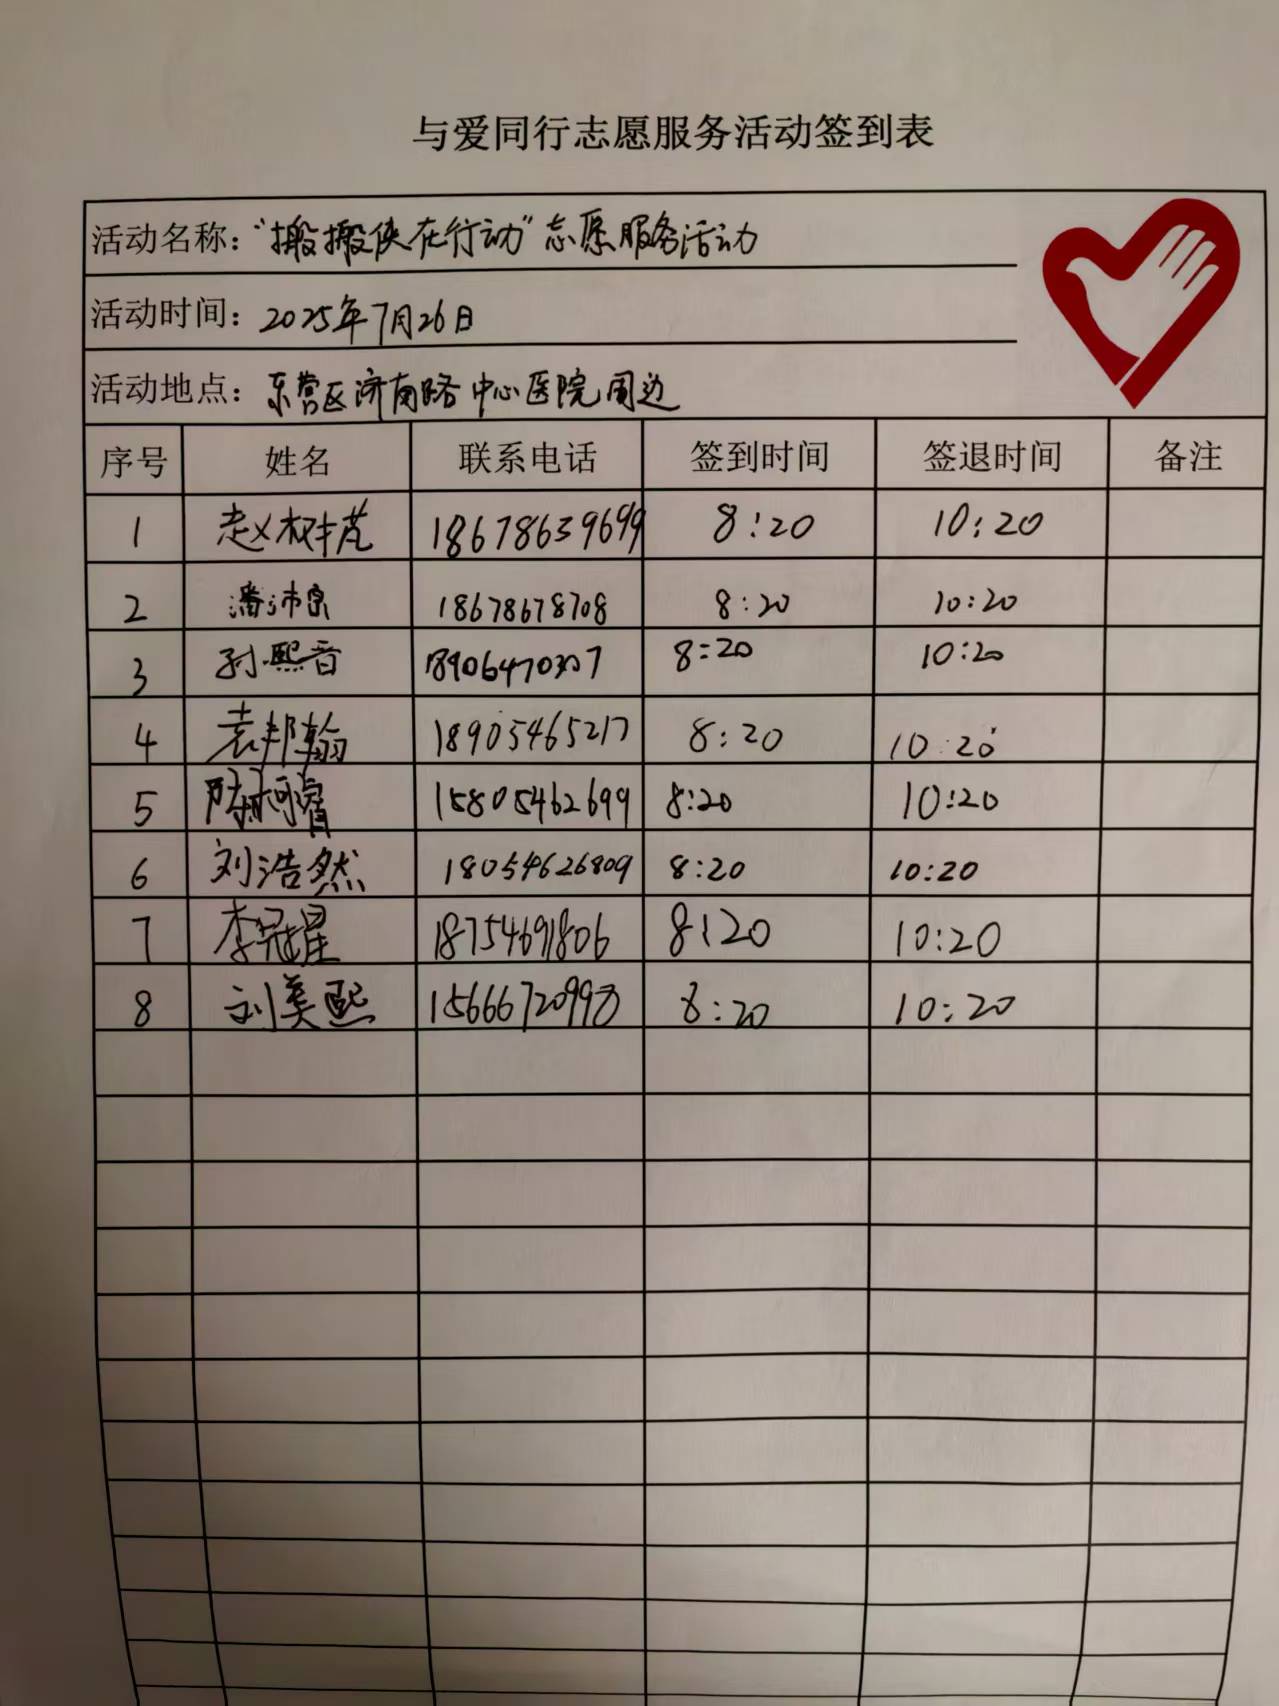 与爱同行志愿服务活动签到表
活动名称："搬搬侠在行动"志愿服务活动
活动时间：2025年7月26日
活动地点：东营区济南路中心医院周边
序号 姓名 联系电话 签到时间 签退时间 备注
1 赵树芃 18678639699 8:20 10:20
2 潘沛宗 18678678708 8:20 10:20
3 孙熙音 18906470307 8:20 10:20
4 袁邦翰 18905465217 8:20 10:20
5 15805462699 8:20 10:20
6 刘浩然 18054626809 8:20 10:20
7 李冠星 18754691806 8:20 10:20
8 刘美熙 15666720998 8:20 10:20